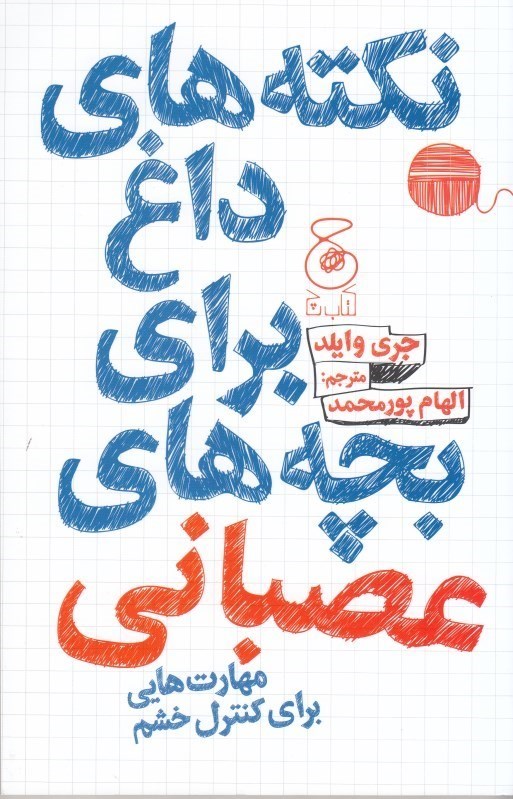 نکته‌های
داغ
برای
بچه‌های
عصبانی
کتاب چ
جری وایلد
مترجم:
الهام پورمحمد
مهارت‌هایی
برای کنترل خشم